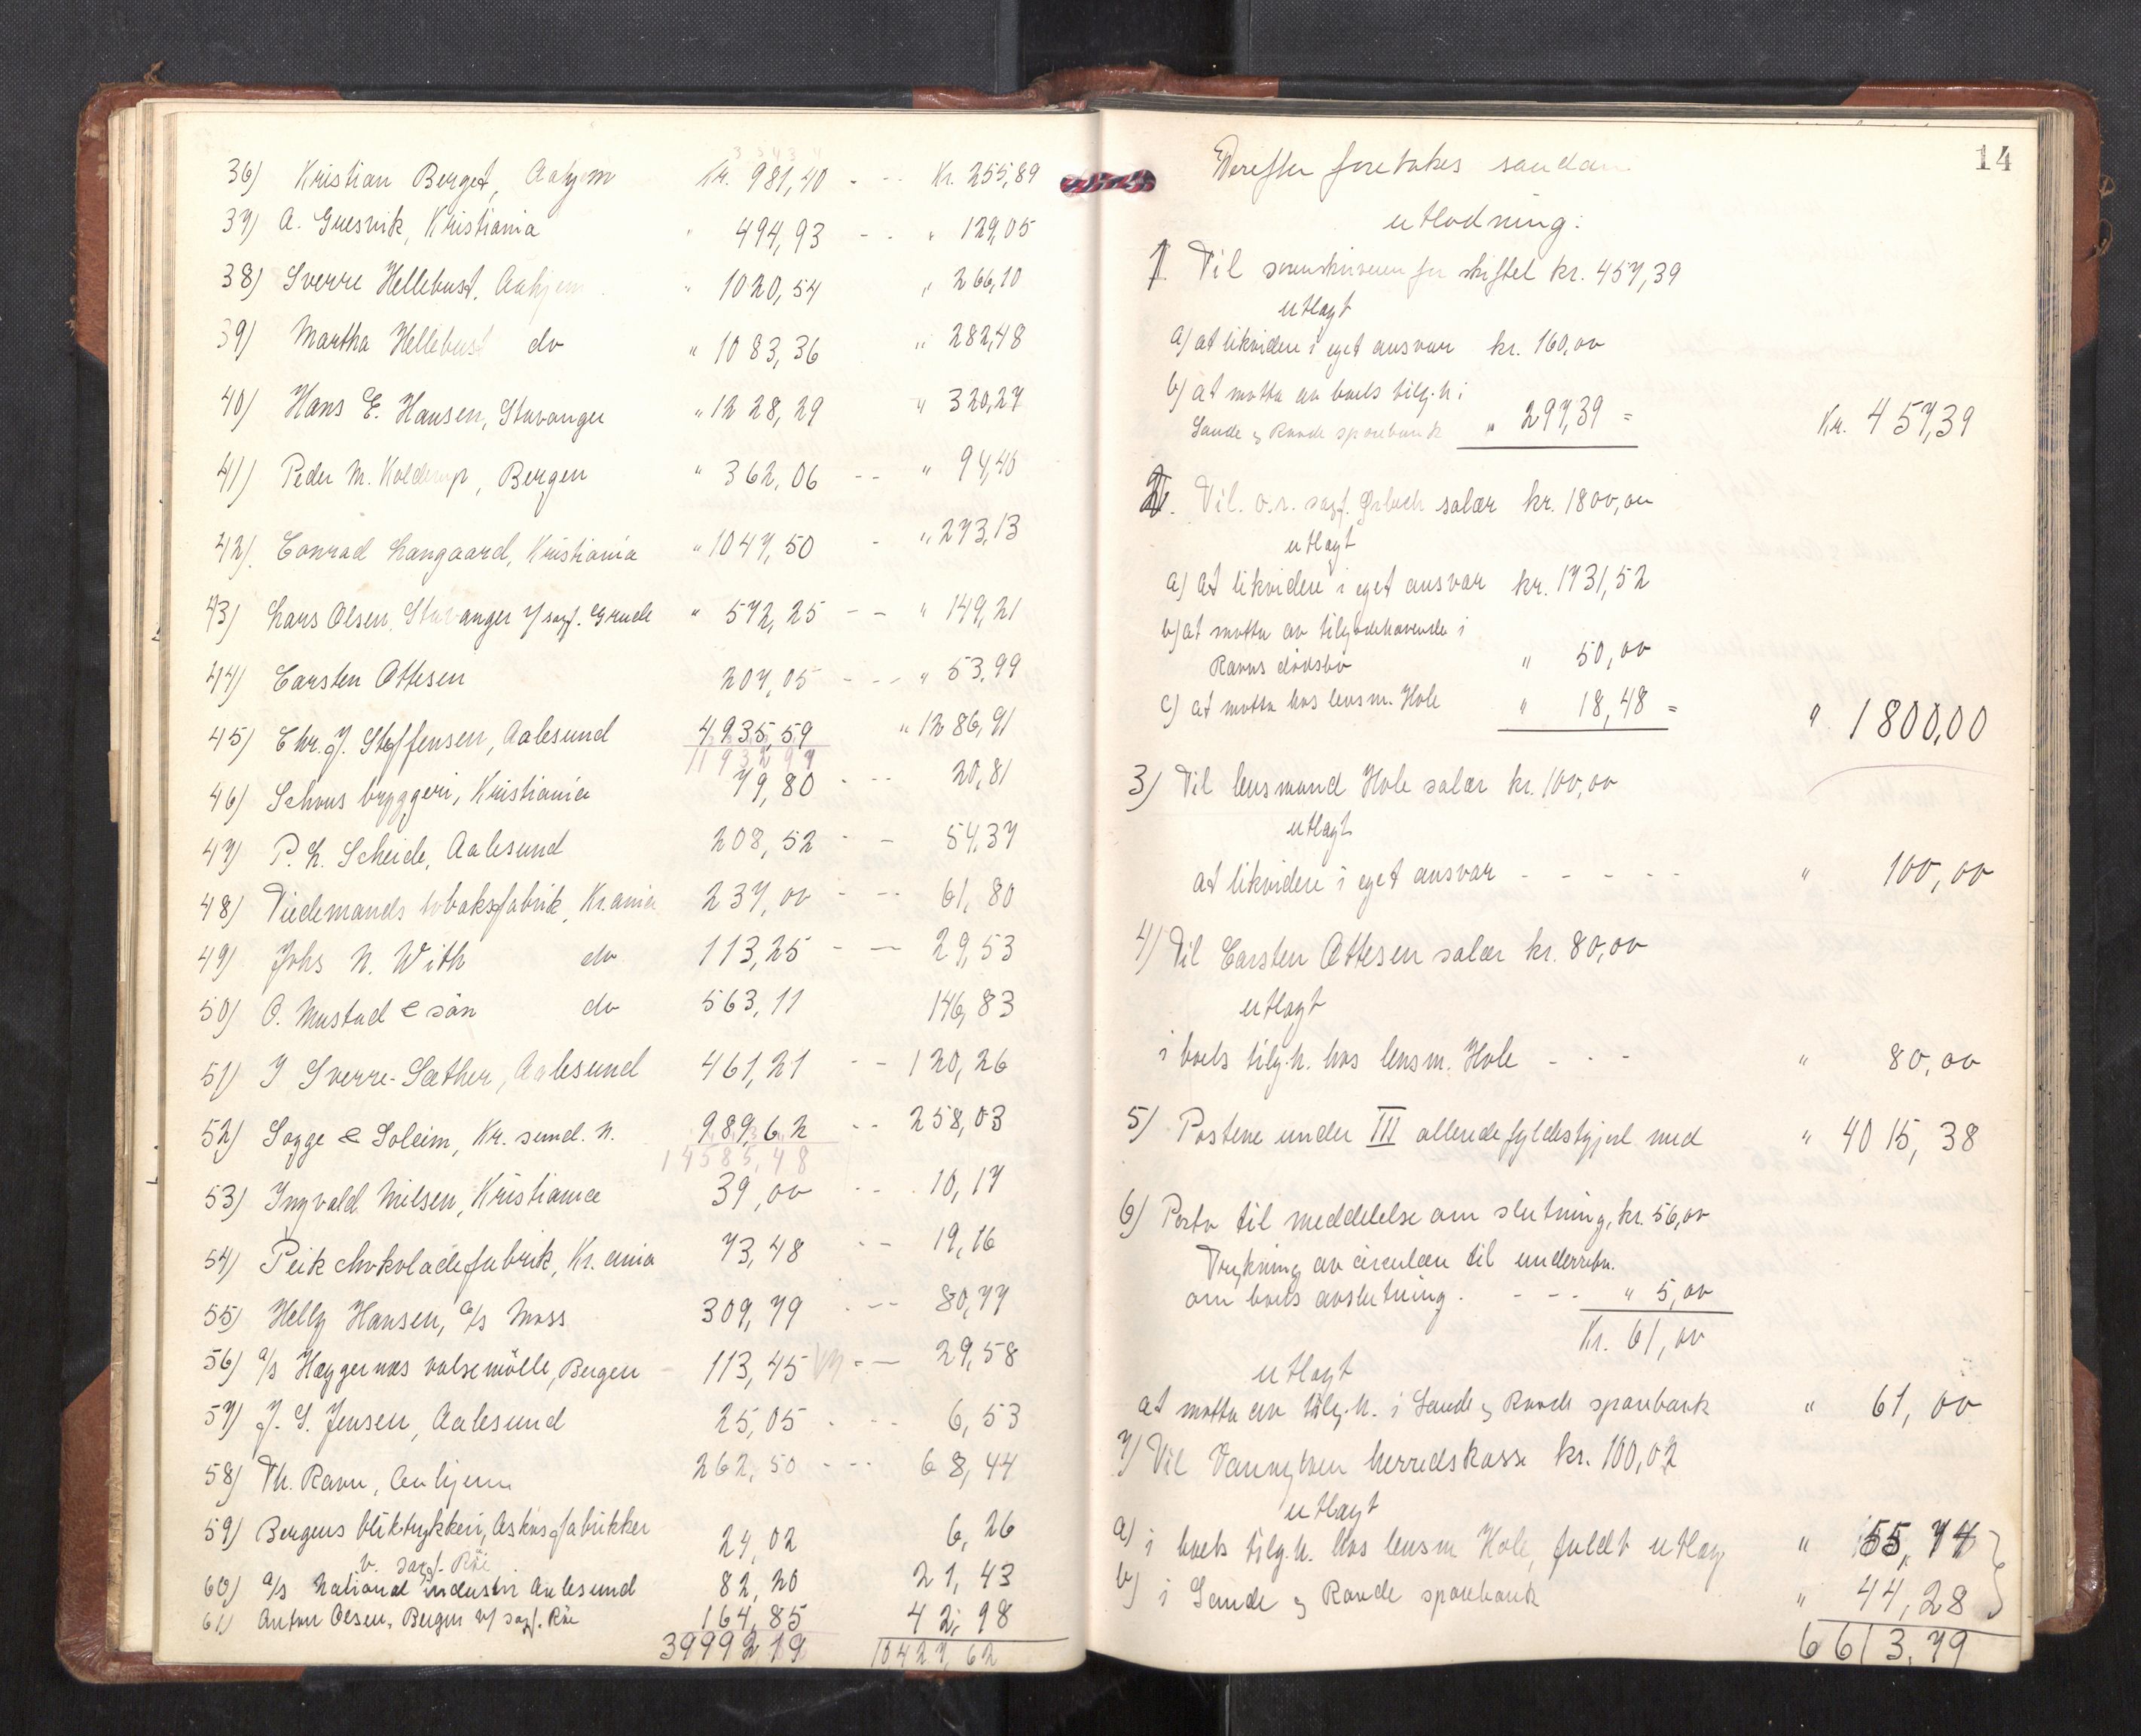 36) Kristian Berget, Aahjem kr. 981,40 - -- Kr. 255,89
37) A. Gresvik, Kristiania " 494,93 - - " 129,05
38) Sverre Hellebust, Aahjem " 1020,54 " 266,10
39) Martha Hellebust do " 1083,36 " 282,48
40) Hans E. Hansen, Stavanger " 1228,29 " 320,27
41) Peder M. Kolderup, Bergen " 362,06 -- " 94,40
42) Conrad Langaard, Kristiania " 1047,50 - " 273,13
43) Lars Olsen, Stavanger v/ sagf. Grude " 572,25 -- " 149,21
44) Carsten Ottesen 207,05 - -- " 53,99
45) Chr. J. Steffensen, Aalesund 4935,59 " 1286,91
46) Schous bryggeri, Kristiania 79,80 - -- 20,81
47) P. L. Scheide, Aalesund 208,52 - - 54,37
48) Tiedemands tobaksfabrik, Kr.ania 237,00 - -- 61,80
49) Johs N. With do 113,25 - -- 29,53
50) O. Mustad & sön do 563,11 146,83
51) J Sverre-Sæther, Aalesund 461,21 -- 120,26
52) Sogge & Soleim, Kr. sund. N. 989,62 -- 258,03
14585,48
53) Ingvald Nilsen, Kristiania 39,00 -- 10,17
54) Peik chokoladefabrik, Kr.ania 73,48 -- 19,16
55) Helly Hansen, a/s Moss 309,79 - -- 80,77
56) a/s Hæggernæs valsemölle, Bergen - 113,45 - -- 29,58
57) J. S. Jensen, Aalesund 25,05 - -- 6,53
58) Th. Ravn, Aahjem 262,50 - -- 68,44
59) Bergens bliktrykkeri, Askøs fabrikker 24,02 6,26
v. sagf. Röe
60) a/s National industri Aalesund 82,20 21,43
61) Anton Olsen, Bergen v/ sagf. Röe 164,85 42,98
39992,19 10427,62
14
Derefter foretokes saadan
utlodning:
1. Til sorenskriveren for skiftet kr. 457,39
utlagt
a) at likvidere i eget ansvar kr. 160,00
b) at motta av boets tilg.h. i
Sande & Rovde sparebank " 297,39 = Kr. 457,39
2. Til o.r. sagf. salær kr. 1800,00
utlagt
a) at likvidere i eget ansvar kr. 1731,52
b) at motta av tilgodehavende i
Ravns dödsbo " 50,00
c) at motta hos lensm. Hole " 18,48 = " 1800,00
3) Til lensmand Hole salær kr. 100,00
utlagt
at likvidere i eget ansvar - - - - - " 100,00
4) Til Carsten Ottesen salær kr. 80,00
utlagt
i boets tilg.h. hos lensm. Hole - - - " 80,00
5) Postene under III allerede fyldestgjort med " 4015,38
6) Porto til meddelelse om slutning, kr. 56,00
Trykning av circulære til underretn.
om boets avslutning . - - - " 5,00
Kr. 61,00
utlagt
at motta av tilg.h. i Sande & Rovde sparebank " 61,00
7) Til Vannylven herredskasse kr. 100,02
utlagt
a) i boets tilg.h. hos lensm Hole, fuldt utlag " 55,74
b) i Sande & Rovde sparebank " 44,28
6613,79